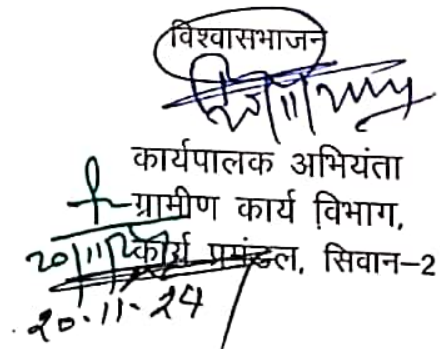 विश्वासभाजन
कार्यपालक अभियंता
ग्रामीण कार्य विभाग,
20/11/24 कार्य प्रमंडल, सिवान-2
20.11.24